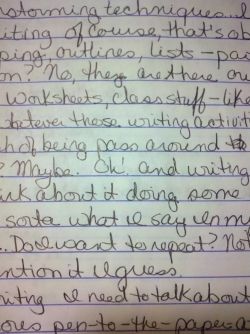 nstorming techniques...I
iting of course, that's ob
ping, outlines, lists - pai
on? No, they are there on
Worksheets, class stuff - like
hatever these writing activit
h of being pass around
? Maybe. Oh! and writing
nk about it doing some
sorta what I say in m
.. Do I want to repeat? No
ntion it I guess.
riting I need to talk about
ores pen-to-the-paper a